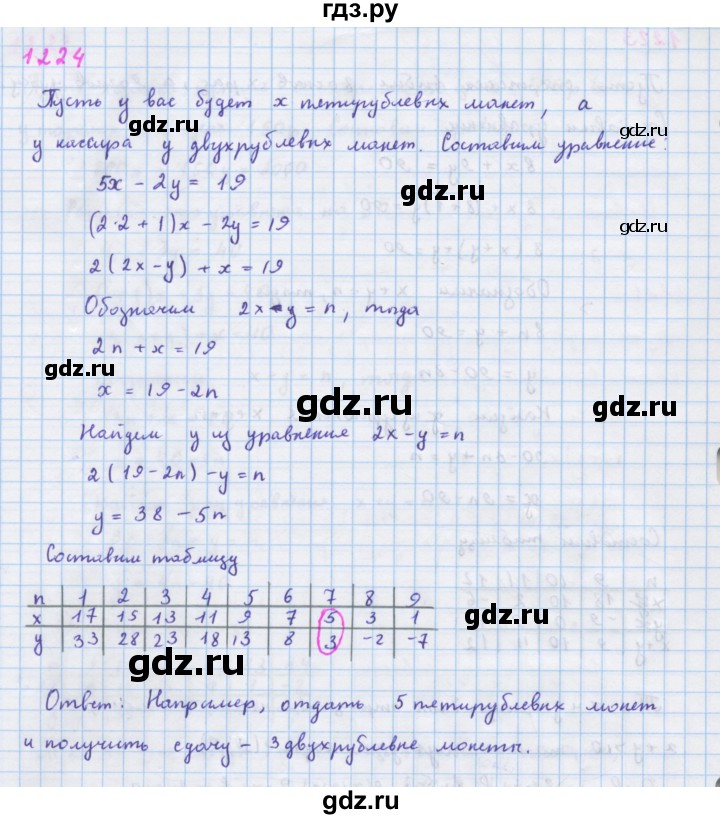 гдз.рф
1224
Пусть у вас будет x пятирублевых монет, а
у кассира y двухрублевых монет. Составим уравнение:
5x - 2y = 19
(2·2 + 1)x - 2y = 19
2(2x - y) + x = 19
Обозначим 2x - y = n, тогда
2n + x = 19
x = 19 - 2n
Найдем y из уравнения 2x - y = n
2(19 - 2n) - y = n
y = 38 - 5n
Составим таблицу
n | 1 | 2 | 3 | 4 | 5 | 6 | 7 | 8 | 9
x | 17 | 15 | 13 | 11 | 9 | 7 | 5 | 3 | 1
y | 33 | 28 | 23 | 18 | 13 | 8 | 3 | -2 | -7
Ответ: Например, отдать 5 пятирублевых монет
и получить сдачу - 3 двухрублевые монеты.
gdz.ru
gdz.ru
gdz.ru
gdz.ru
gdz.ru
gdz.ru
gdz.ru
gdz.ru
gdz.ru
gdz.ru
gdz.ru
gdz.ru
gdz.ru
gdz.ru